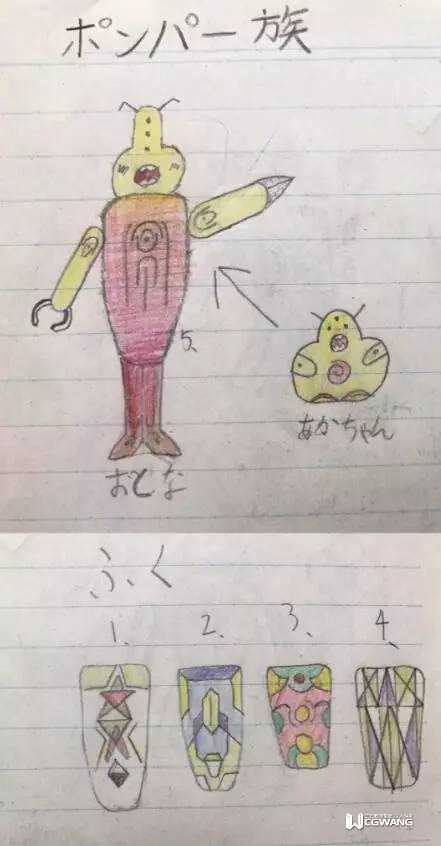 ポンパー族
5、
あかちゃん
おとな
ふく
1、 2、 3、 4、
CGWANG